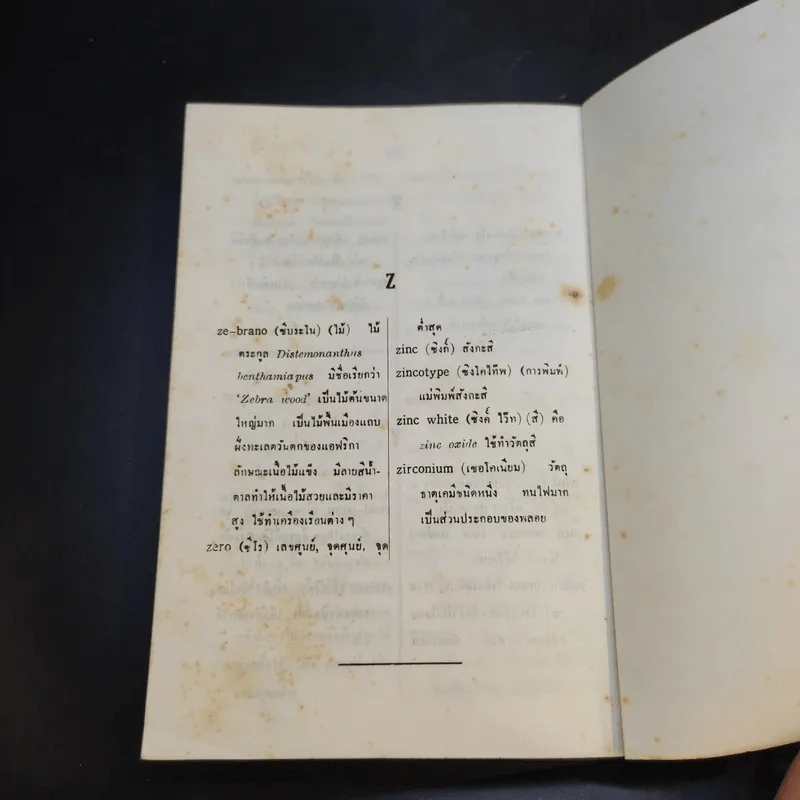 Z
ze-brano (ซีบระโน) (ไม้) ไม้
ตระกูล Distemonanthus
benthamiapus มีชื่อเรียกว่า
‘Zebra wood’ เป็นไม้ต้นขนาด
ใหญ่มาก เป็นไม้พื้นเมืองแถบ
ฝั่งทะเลตวันตกของแอฟริกา
ลักษณะเนื้อไม้แข็ง มีลายสีน้ำ-
ตาลทำให้เนื้อไม้สวยและมีราคา
สูง ใช้ทำเครื่องเรือนต่าง ๆ
zero (ซีโร) เลขศูนย์, จุดศูนย์, จุด
ต่ำสุด
zinc (ซิงก์) สังกะสี
zincotype (ซิงโคไท๊พ) (การพิมพ์)
แม่พิมพ์สังกะสี
zinc white (ซิงค์ ไว๊ท) (สี) คือ
zinc oxide ใช้ทำวัตถุสี
zirconium (เซอโคเนียม) วัตถุ
ธาตุเคมีชนิดหนึ่ง ทนไฟมาก
เป็นส่วนประกอบของพลอย